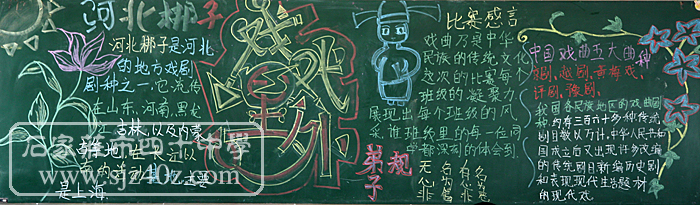 河北梆子
河北梆子是河北
的地方戏剧
剧种之一.它流传
在山东、河南、黑龙
江、吉林、以及内蒙
是上海
戏
比赛感言
戏曲乃是中华
民族的传统文化
这次的比赛每个
班级的凝聚力
展现出每个班级的风
采,谁班级里的每一位同
学都深刻的体会到.
弟子规
中国戏曲五大曲种
京剧、越剧、黄梅戏、
评剧、豫剧、
我国各民族地区的戏曲剧
种,约有三百六十多种,传统
剧目数以万计.中华人民共和
国成立后又出现许多改编
的传统剧目新编历史剧
和表现现代生活题材
的现代戏.
石家庄第四十中學
www.sjz40z.com